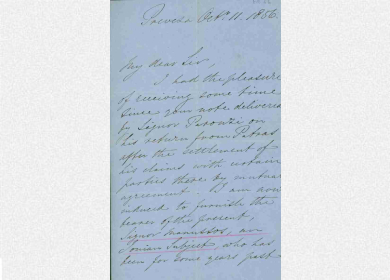 Prevesa Octr. 11. 1856.
My dear Sir,
I had the pleasure
of receiving some time
since your note delivered
by Signor Parouzi on
his return from Patras
after the settlement of
his claims with certain
parties there by mutual
agreement. I am now
induced to furnish the
bearer of the present,
Signor Manussos, an
Ionian Subject, who has
been for some years past